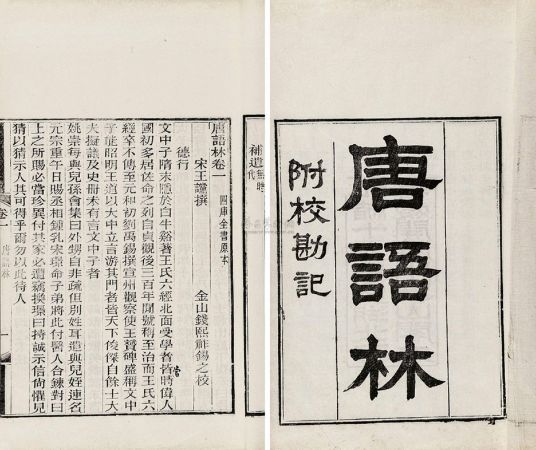 唐語林
附校勘記
補遺無時代
唐語林卷一
四庫全書原本
宋王讜撰
金山錢熙祚錫之校
德行
文中子隋末隱於白牛谿著王氏六經北面受學者皆時偉人
國初多居佐命之列自貞觀後三百年間號稱至治而王氏六
經卒不傳至元和初劉禹錫撰宣州觀察使王贊碑盛稱文中
子能昭明王道以大中立言游其門者皆天下俊傑自餘士大
夫擬議及史冊未有言文中子者
姚崇每與兒孫會集曰外甥自非疏但別姓耳遣與兒姪連名
元宗重午日賜丞相鍾乳宋璟命子弟將此付醫人合鍊對曰
上之所賜必當珍異付其家必遭竊換璟曰持誠示信尚懼見
猜以猜示人其可得乎爾勿以此待人
卷一
唐語林